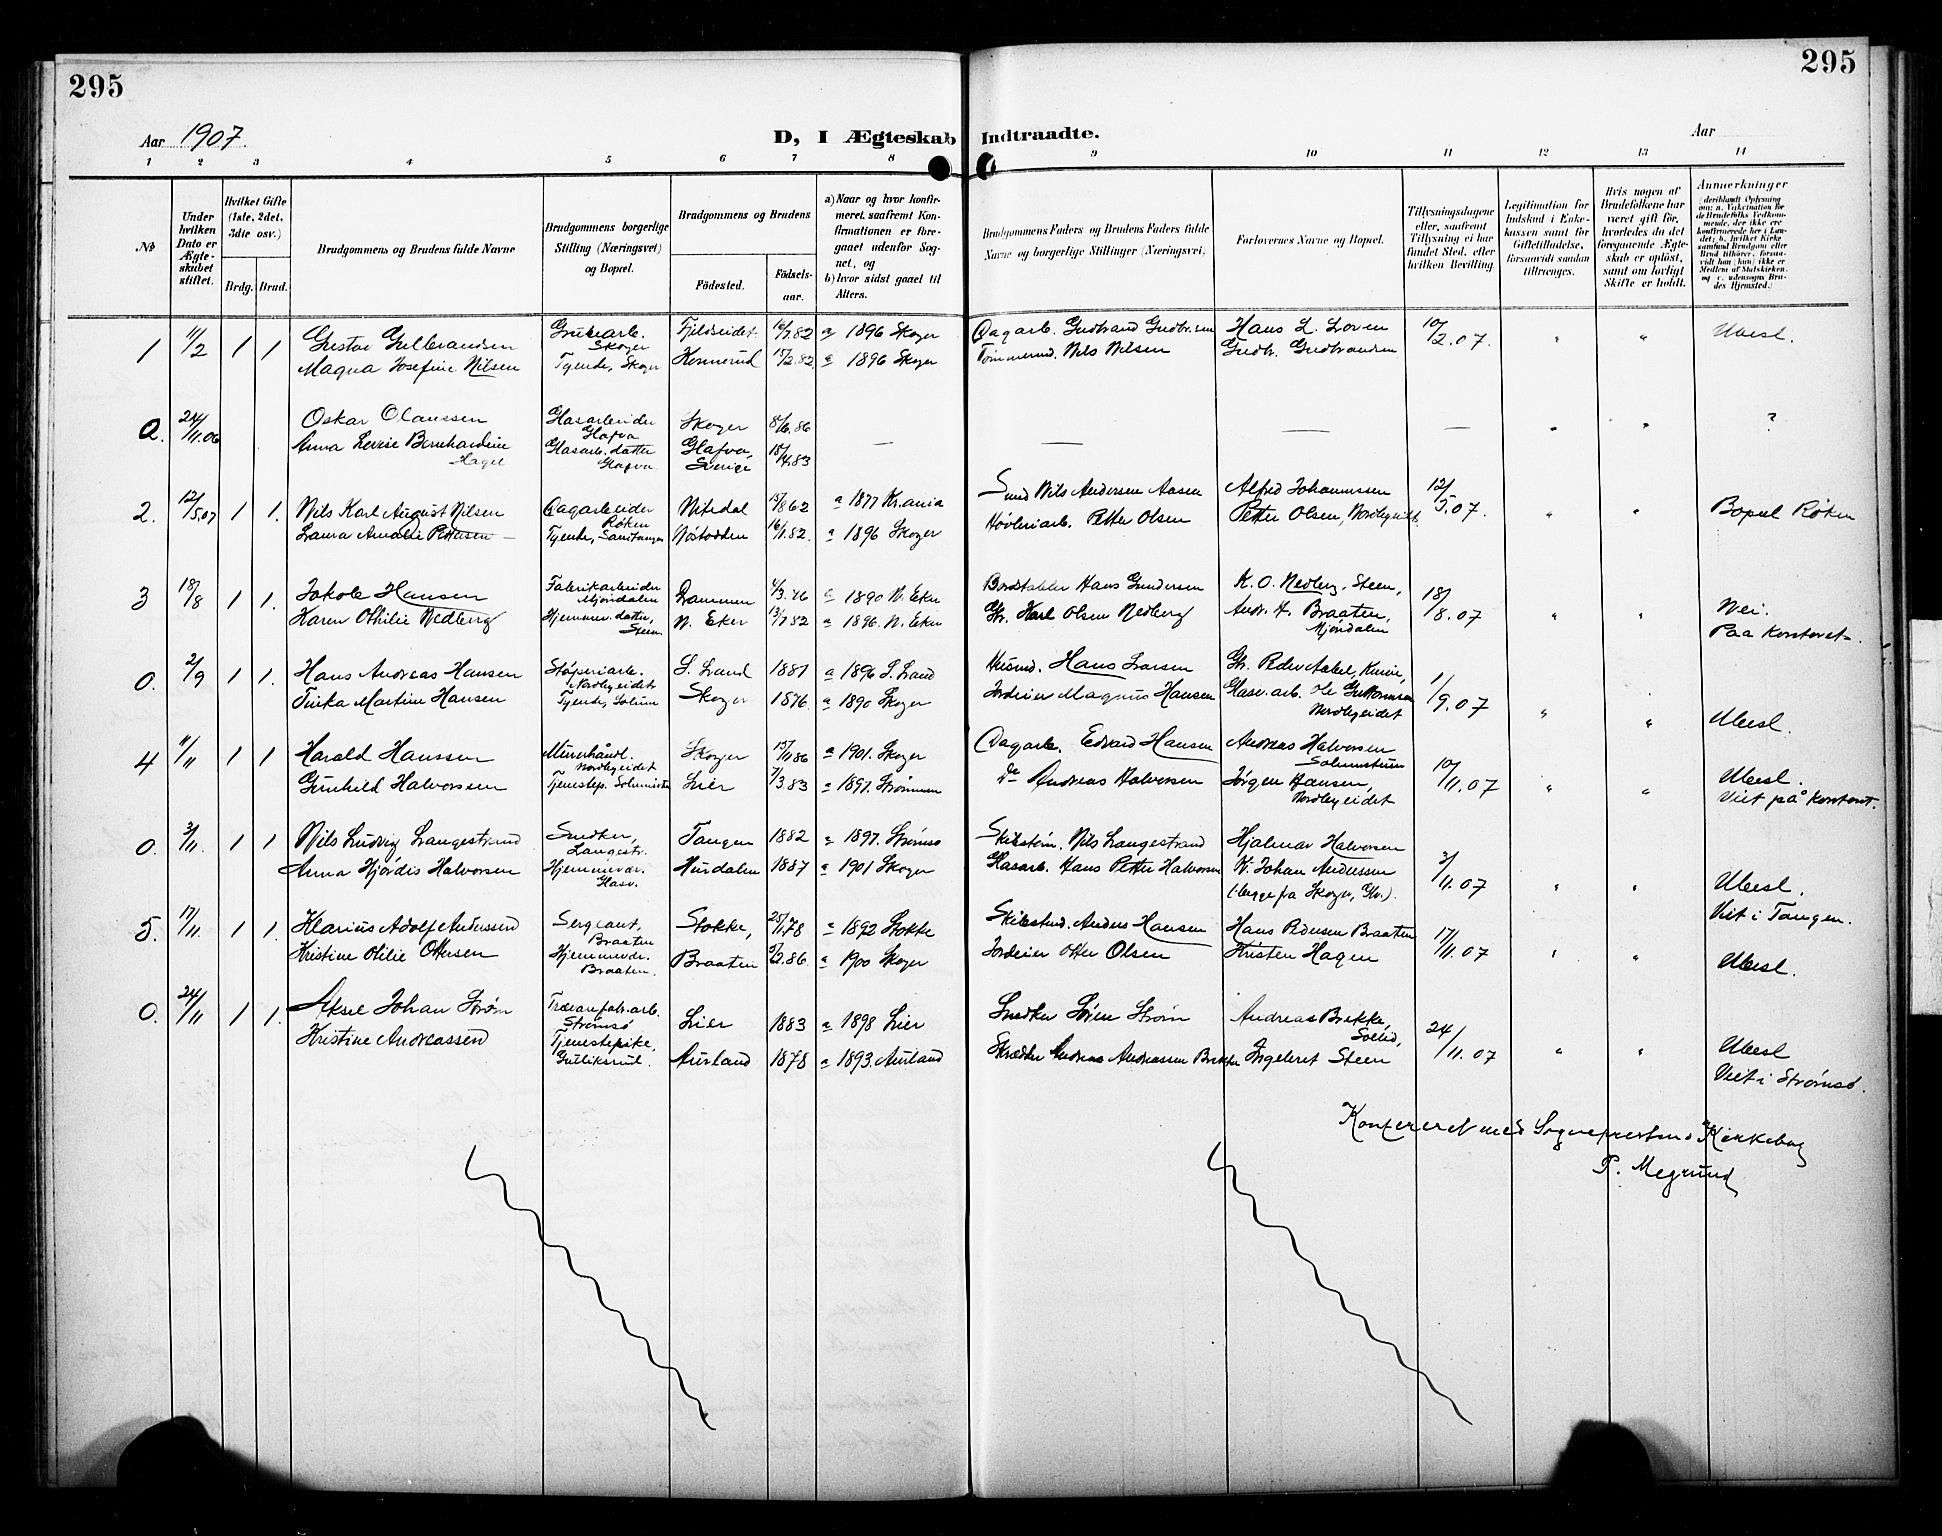 295
295
Aar 1907.
D, I Ægteskab Indtraadte.
Aar
1 2 3 4 5 6 7 8 9 10 11 12 13 14
No
Under hvilken Dato er Ægteskabet stiftet.
Hvilket Gifte (1ste, 2det, 3die osv.)
Brdg. Brud.
Brudgommens og Brudens fulde Navne
Brudgommens borgerlige Stilling (Næringsvei) og Bopæl.
Brudgommens og Brudens
Fødested.
Fødselsaar.
a) Naar og hvor konfirmeret, saafremt Konfirmationen er foregaaet udenfor Sognet, og
b) hvor sidst gaaet til Alters.
Brudgommens Faders og Brudens Faders fulde Navne og borgerlige Stillinger (Næringsvei)
Forlovernes Navne og Bopæl.
Tillysningsdagene eller, saafremt Tillysning ei har fundet Sted, efter hvilken Bevilling.
Legitimation for Indskud i Enkekassen samt for Giftetilladelse, forsaavidt saadan tiltrænges.
Hvis nogen af Brudefolkene har været gift før, hvorledes da det foregaaende Ægteskab er opløst, samt om lovligt Skifte er holdt.
Anmærkninger (deriblandt Oplysning om: a. Vakcination for de Brudefolks Vedkommende, der ikke ere konfirmerede her i Landet; b. hvilket Kirkesamfund Brudgom eller Brud tilhører, forsaavidt han (hun) ikke er Medlem af Statskirken, og c. udensogns Brudes Hjemsted.)
1 11/2 1 1 Gustav Gulbrandsen Grubearb. Skoger Fjeldseidet 82 a 1896 Skoger Dagarb. Gudbrand Gudbr.sen Hans L. Loven 10/2.07. " " Ubesl.
Magna Josefine Nilsen Tyende, Skoger Konnerud 15/2.82 a 1896 Skoger Tømmermd. Nils Nilsen Gudbr. Gudbrandsen
0. 24/11.06 Oskar Olaussen Glasarbeider Glafva Skoger 8/6.86 — — — — " " ?
Anna Lovise Bernhardine Hagel Glasarb. datter Glafva Glafva, Sverige 15/4.83
2. 12/5.07 1 1. Nils Karl August Nilsen Dagarbeider Røken Nitedal 15/8 62 a 1877 Kr.ania Smed Nils Andersen Aasen Alfred Johannessen 12/5.07. " " Bopæl Røken
Laura Amalie Pettersen Tyende, Nøstodden 16/1.82. a 1896 Skoger Høvleriarb. Petter Olsen Petter Olsen, Nordbyeidet
3 18/8 1 1. Jakob Hansen Fabrikarbeider Mjøndalen Drammen 4/3.76 a 1890 N. Eker Bordstabler Hans Gundersen K. O. Nedberg, Steen, 18/8.07 " " Nei.
Karen Othilie Nedberg Hjemmev. datter, Steen N. Eker 13/7 82 a 1896. N. Eker Gb. Karl Olsen Nedberg Andr. A. Braaten, Mjøndalen Paa Kontoret.
0. 2/9 1 1. Hans Andreas Hansen Støperiarb. Nordbyeidet S. Land 1881 a 1896 S. Land Husmd. Hans Larsen 1/9.07 " "
Tinka Martine Hansen Tyende, Solum Skoger 1876 a 1890 Skoger Jordeier Magnus Hansen Glasv. arb. Ole Guttormsen Nordbyeidet Ubesl.
4 11/11 1 1 Harald Hanssen Murerhåndl. Nordbyeidet Skoger 15/11 86 a 1901. Skoger Dagarb. Edvard Hansen Andreas Halvorsen 10/11.07 " " Ubesl.
Gunhild Halvorsen Tjenestep. Lier 7/3.83 a 1897. Strømmen Do Andreas Halvorsen Jørgen Hansen, Nordbyeidet Viet på Kontoret.
0. 3/11. 1 1 Nils Ludvig Langestrand Snedker, Langestr. Tangen 1882 a 1897. Strømsø Skibstøm. Nils Langestrand Hjalmar Halvorsen 3/11.07 " " Ubesl.
Anna Hjørdis Halvorsen Hjemmevær. Glasv. Hurdalen 1887 a 1901 Skoger Glasarb. Hans Petter Halvorsen K. Johan Andersen (begge fra Skoger, Glv.) Viet i Tangen.
5. 17/11. 1 1. Klarius Adolf Anderssen Sergeant, Braaten Stokke, 25/11.78 a 1892 Stokke Anders Hansen Hans Pedersen Braaten 17/11.07 " " Ubesl.
Kristine Othilie Ottersen Hjemmevær. Braaten. Braaten 86. a 1900 Skoger Jordeier Otter Olsen Kristen Hagen
0. 24/11 1 1. Aksel Johan Strøm Trævarefabr.arb. Strømsø Lier 1883 a 1898 Lier Snedker Søren Strøm Andreas Brekke, 24/11.07 " " Ubesl
Kristine Andreassen Tjenestepike, Gulliksrud. Aurland 1878 a 1893. Aurland Skrædder Andreas Andreassen Brekke Ingebret Steen Viet i Strømsø.
Konfereret med Sogneprestens Kirkebog
P. Megrund